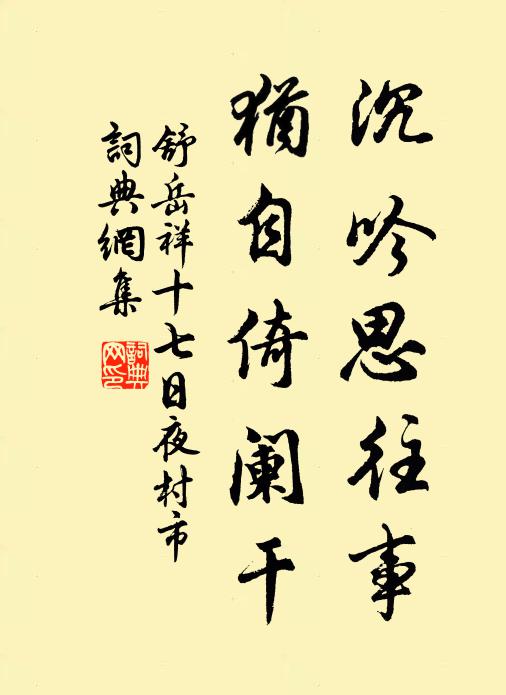 沉吟思往事
猶自倚阑干
舒岳祥十七日夜村市
詞典網集
詞典网印